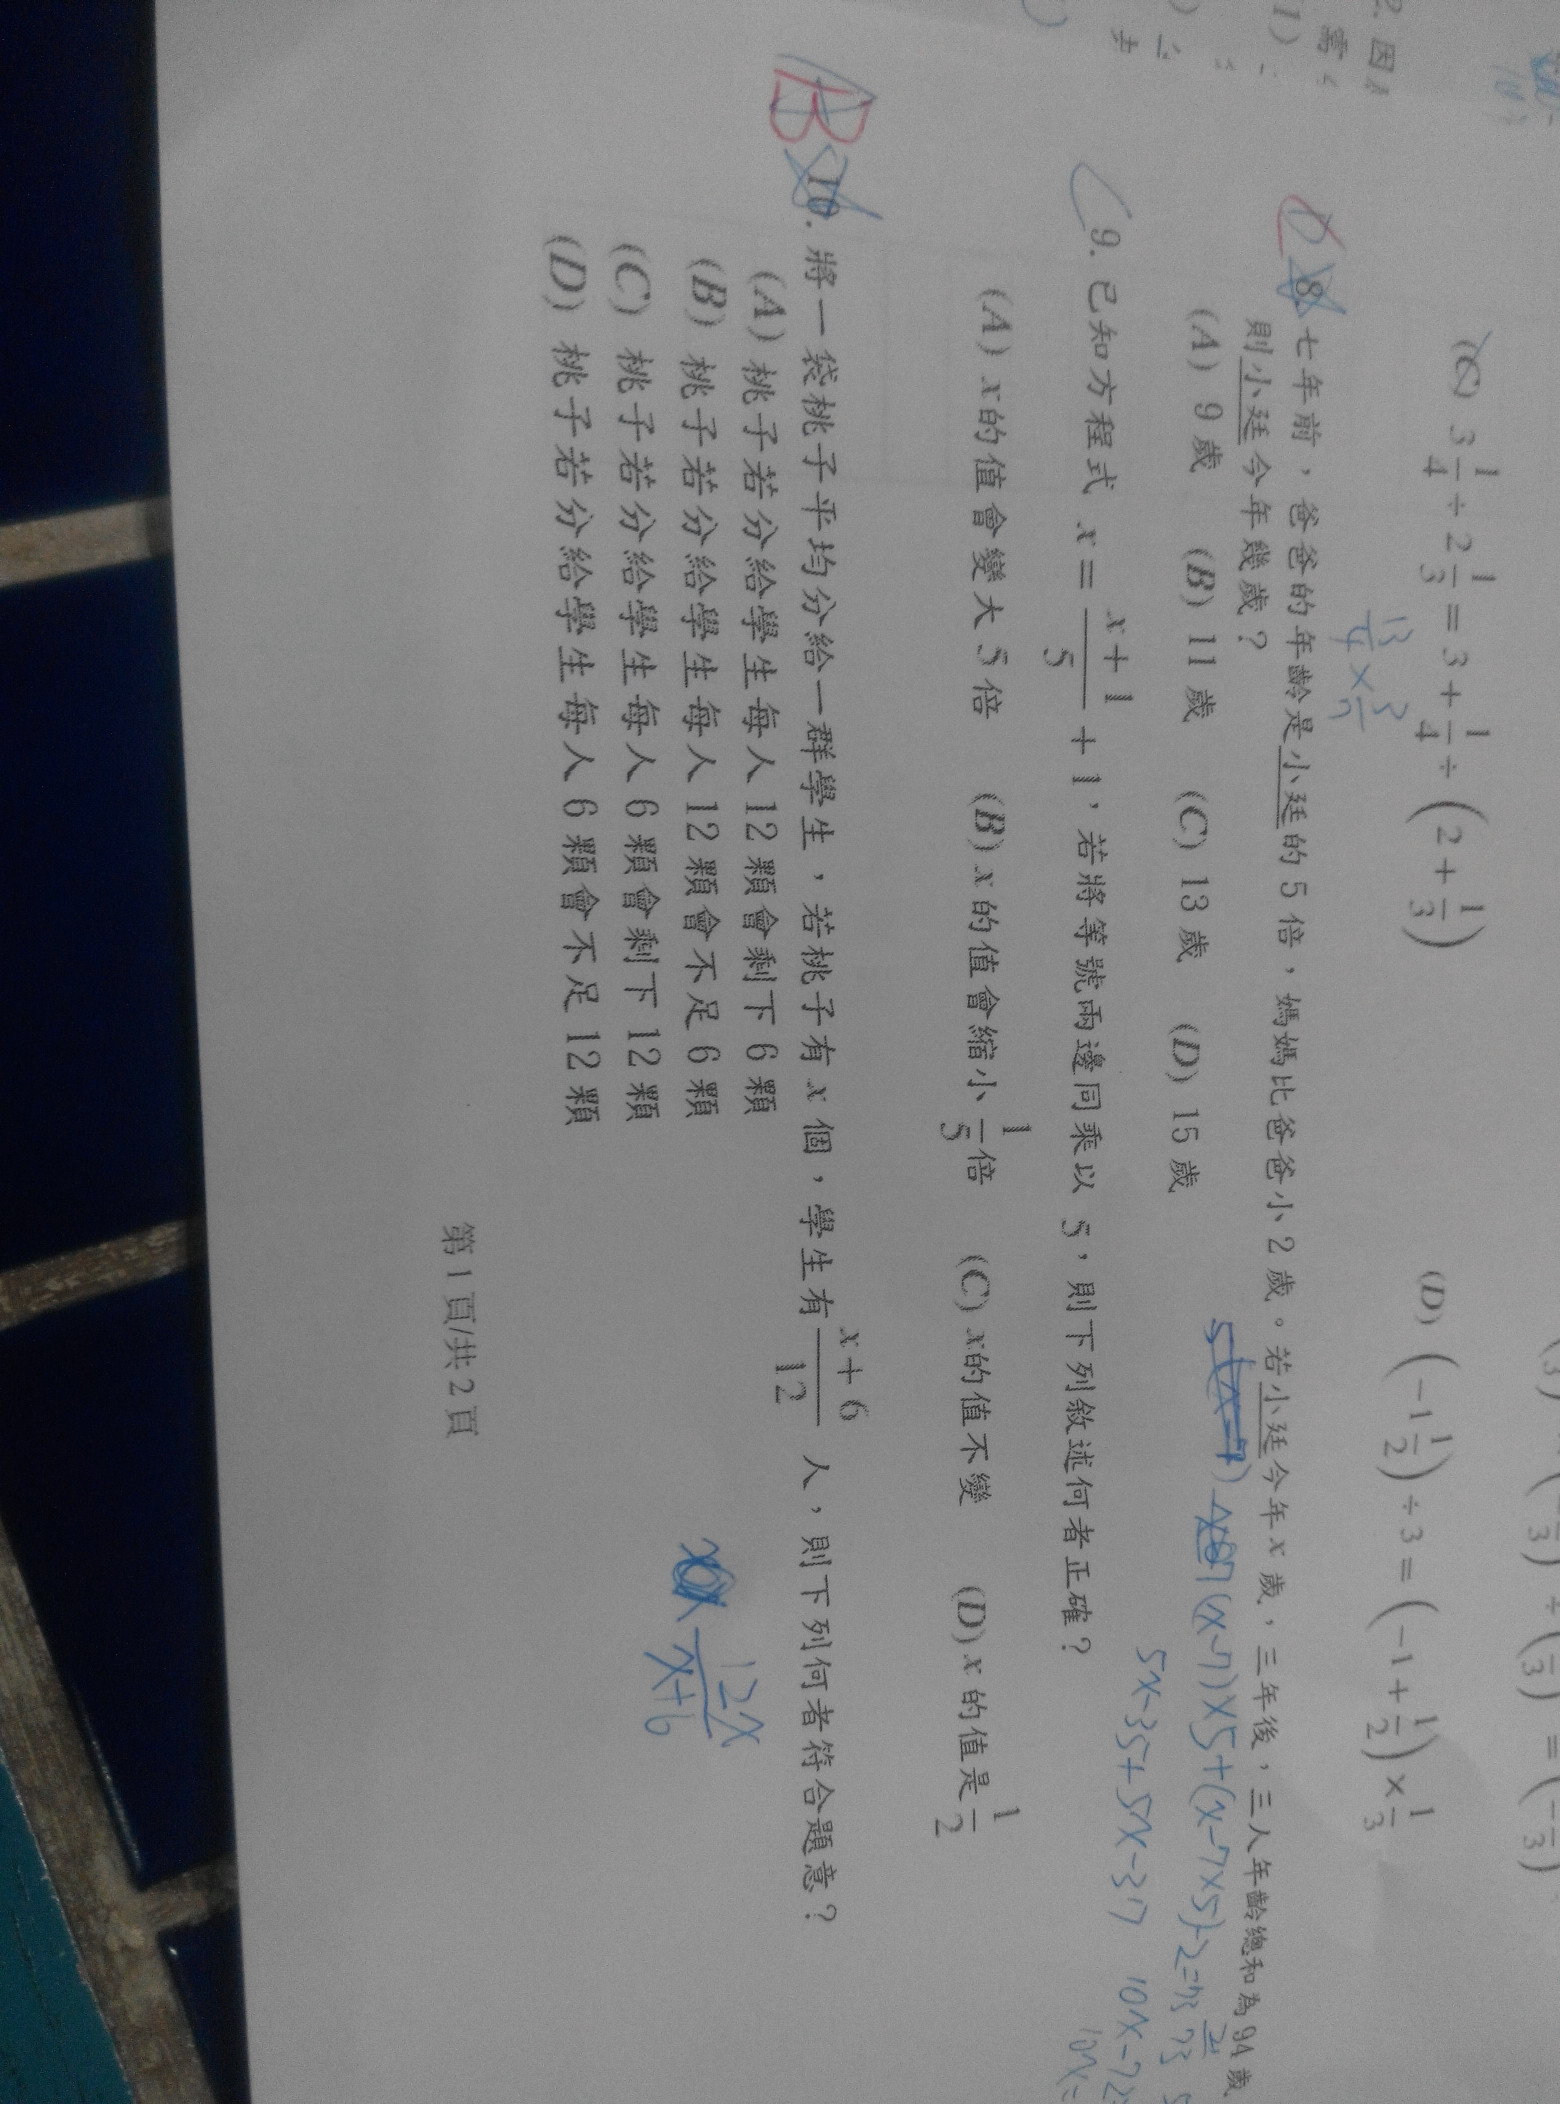 2. 因
(C) 3 1/4 ÷ 2 1/3 = 3 + 1/4 ÷ (2 + 1/3)
(D) (-1 1/2) ÷ 3 = (-1 + 1/2) × 1/3
13/4 × 3/7
8. 七年前，爸爸的年齡是小廷的 5 倍，媽媽比爸爸小 2 歲。若小廷今年 x 歲，三年後，三人年齡總和為 94 歲，
則小廷今年幾歲？
(A) 9 歲 (B) 11 歲 (C) 13 歲 (D) 15 歲
(x-7)×5+(x-7×5)-2=73
5x-35+5x-37
9. 已知方程式 x = (x+1)/5 + 1，若將等號兩邊同乘以 5，則下列敘述何者正確？
(A) x 的值會變大 5 倍 (B) x 的值會縮小 1/5 倍 (C) x 的值不變 (D) x 的值是 1/2
B 10. 將一袋桃子平均分給一群學生，若桃子有 x 個，學生有 (x+6)/12 人，則下列何者符合題意？
(A) 桃子若分給學生每人 12 顆會剩下 6 顆
(B) 桃子若分給學生每人 12 顆會不足 6 顆
(C) 桃子若分給學生每人 6 顆會剩下 12 顆
(D) 桃子若分給學生每人 6 顆會不足 12 顆
12x/(x+6)
第 1 頁/共 2 頁